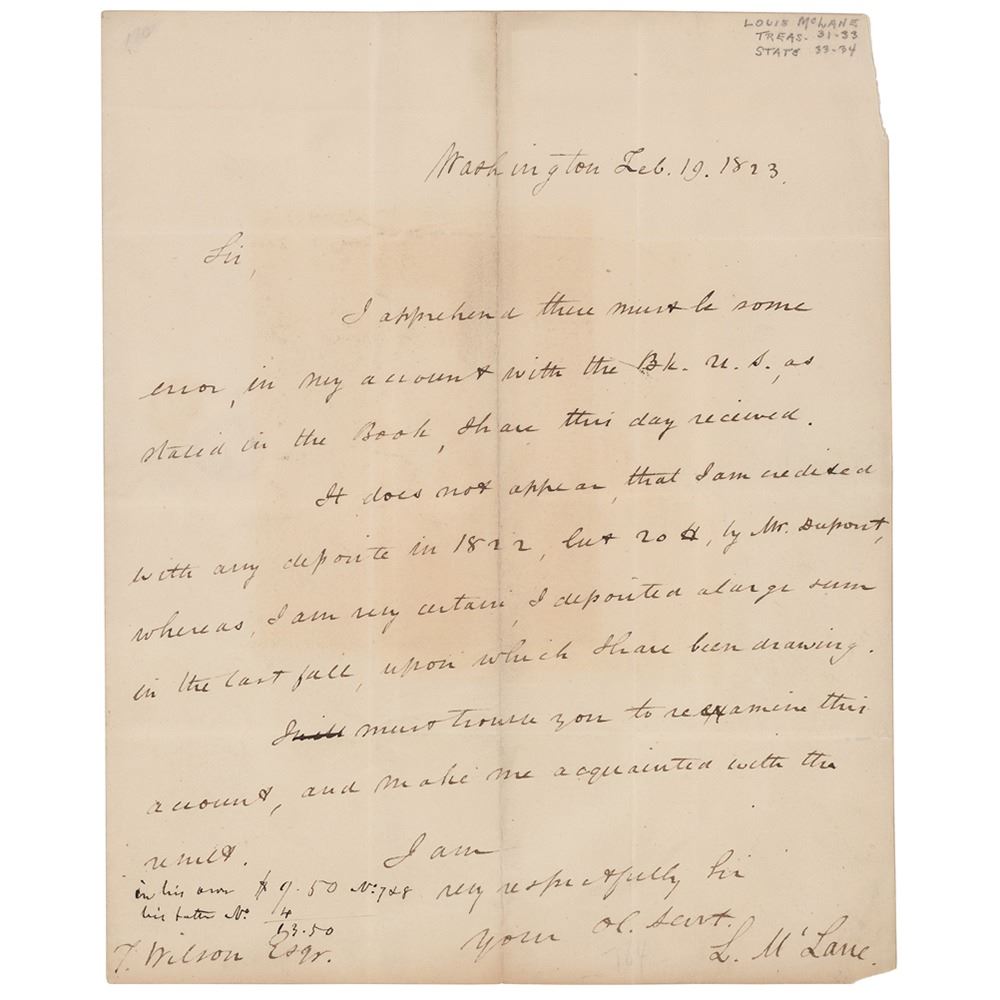 LOUIS McLANE
TREAS. 31-33
STATE 33-34
Washington Feb. 19. 1823.
Sir,
I apprehend there must be some
error, in my account with the Bk. U. S., as
stated in the Book, I have this day received.
It does not appear, that I am credited
with any deposite in 1822, but 20 , by Mr. Dupont,
whereas, I am very certain, I deposited a large sum
in the last fall, upon which I have been drawing.
I will must trouble you to reexamine this
account, and make me acquainted with the
result. I am
in his own $9.50 No. 748 very respectfully Sir
his No. 4
13.50
your ob. Servt.
T. Wilson Esqr. L. McLane.